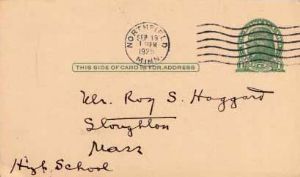 NORTHFIELD
SEP 19
MINN.
THIS SIDE OF CARD IS FOR ADDRESS
Mr. Roy S. Haggard
Stoughton
Mass
High School